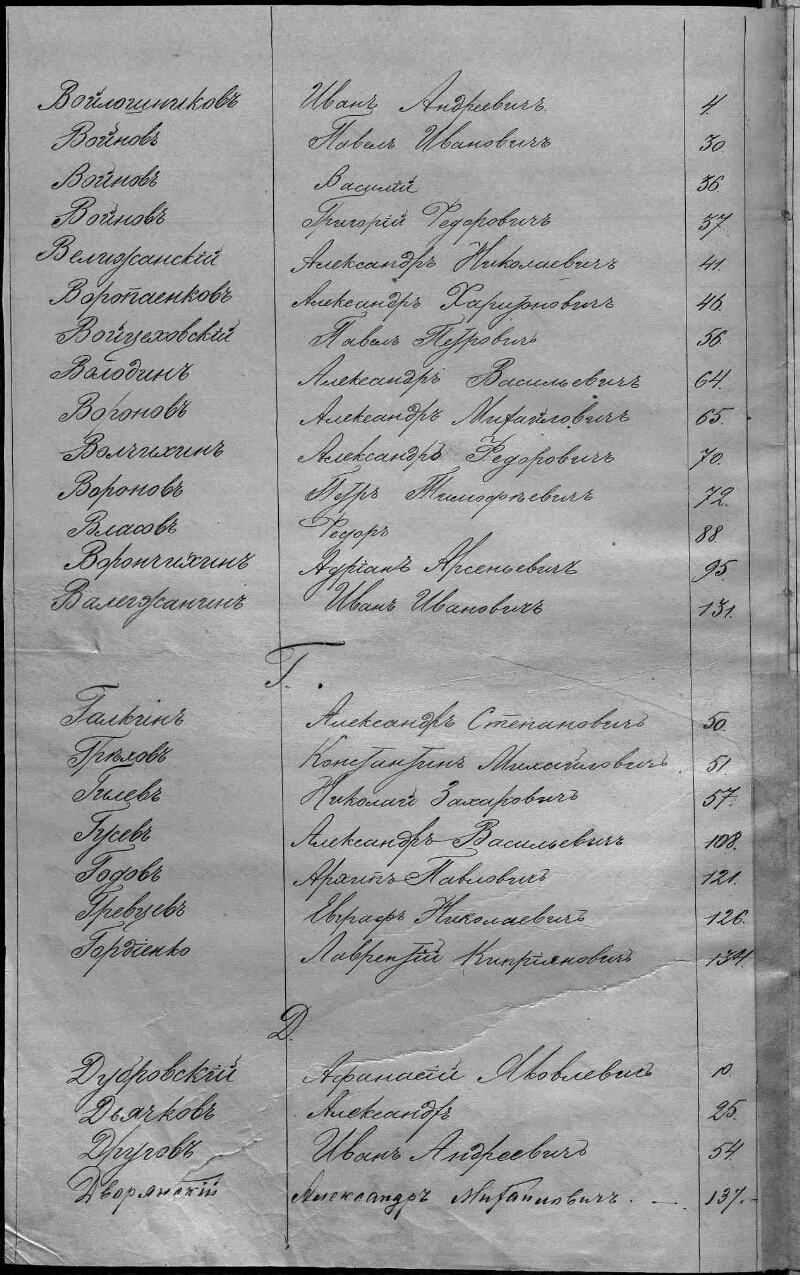 Войлошниковъ Иванъ Андреевичъ. 4.
Войновъ Павелъ Ивановичъ 30.
Войновъ Василій 36.
Войновъ Григорій Ѳедоровичъ 37.
Велижанскій Александръ Николаевичъ 41.
Воропаенковъ Александръ Харитоновичъ 46.
Войцеховскій Павелъ Петровичъ 56.
Володинъ Александръ Васильевичъ 64.
Вогоновъ Александръ Михайловичъ 65.
Волчихинъ Александръ Ѳедоровичъ 70.
Вороновъ Петръ Тимофѣевичъ 72.
Власовъ Ѳедоръ 88.
Ворончихинъ Адріанъ Арсеньевичъ 95.
Валегжангинъ Иванъ Ивановичъ 131.
Г.
Галкинъ Александръ Степановичъ 50.
Грѣховъ Константинъ Михайловичъ 51.
Гилевъ Николай Захаровичъ 57.
Гусевъ Александръ Васильевичъ 108.
Годовъ Архипъ Павловичъ 121.
Гревцевъ Евграфъ Николаевичъ 126.
Гордіенко Лаврентій Кипріяновичъ 134.
Д.
Дубровскій Афанасій Яковлевичъ 10.
Дьячковъ Александръ 25.
Друговъ Иванъ Андреевичъ 54
Дворянскій Александръ Михаиловичъ. 137.